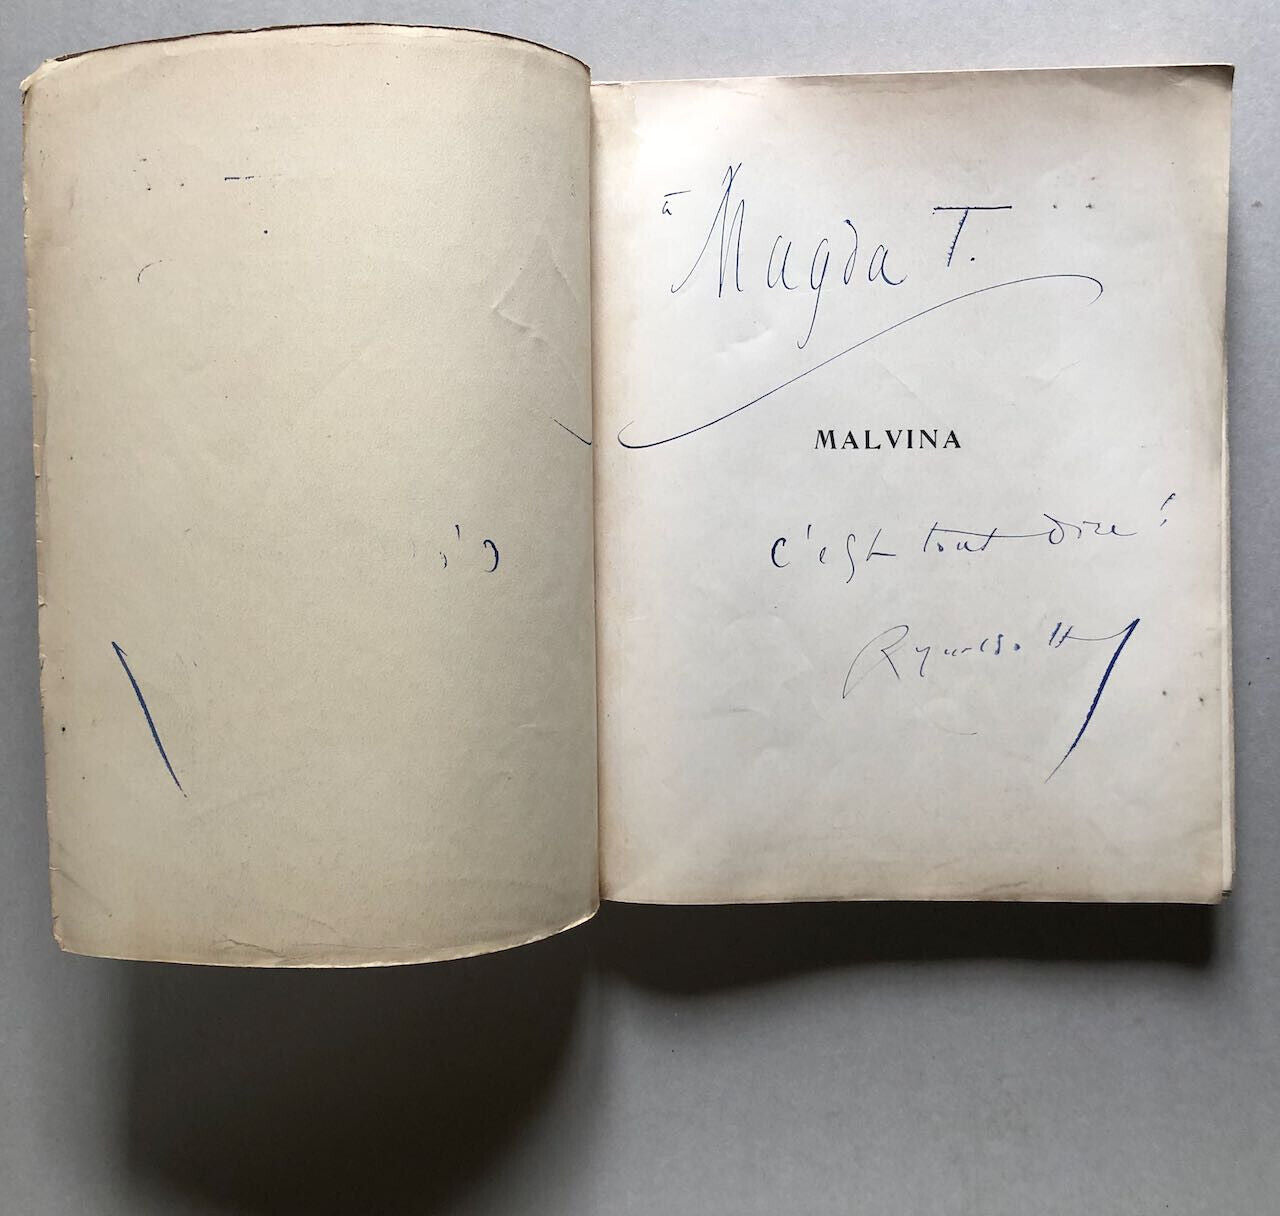 à
Magda T.
MALVINA
c'est tout dire !
Reynaldo H